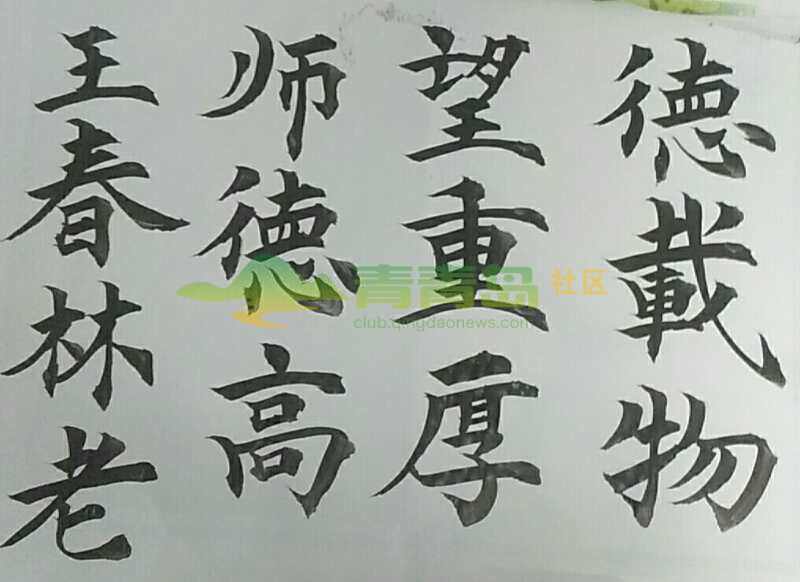 王春林老
师德高
望重厚
德載物
青青岛社区
club.qingdaonews.com